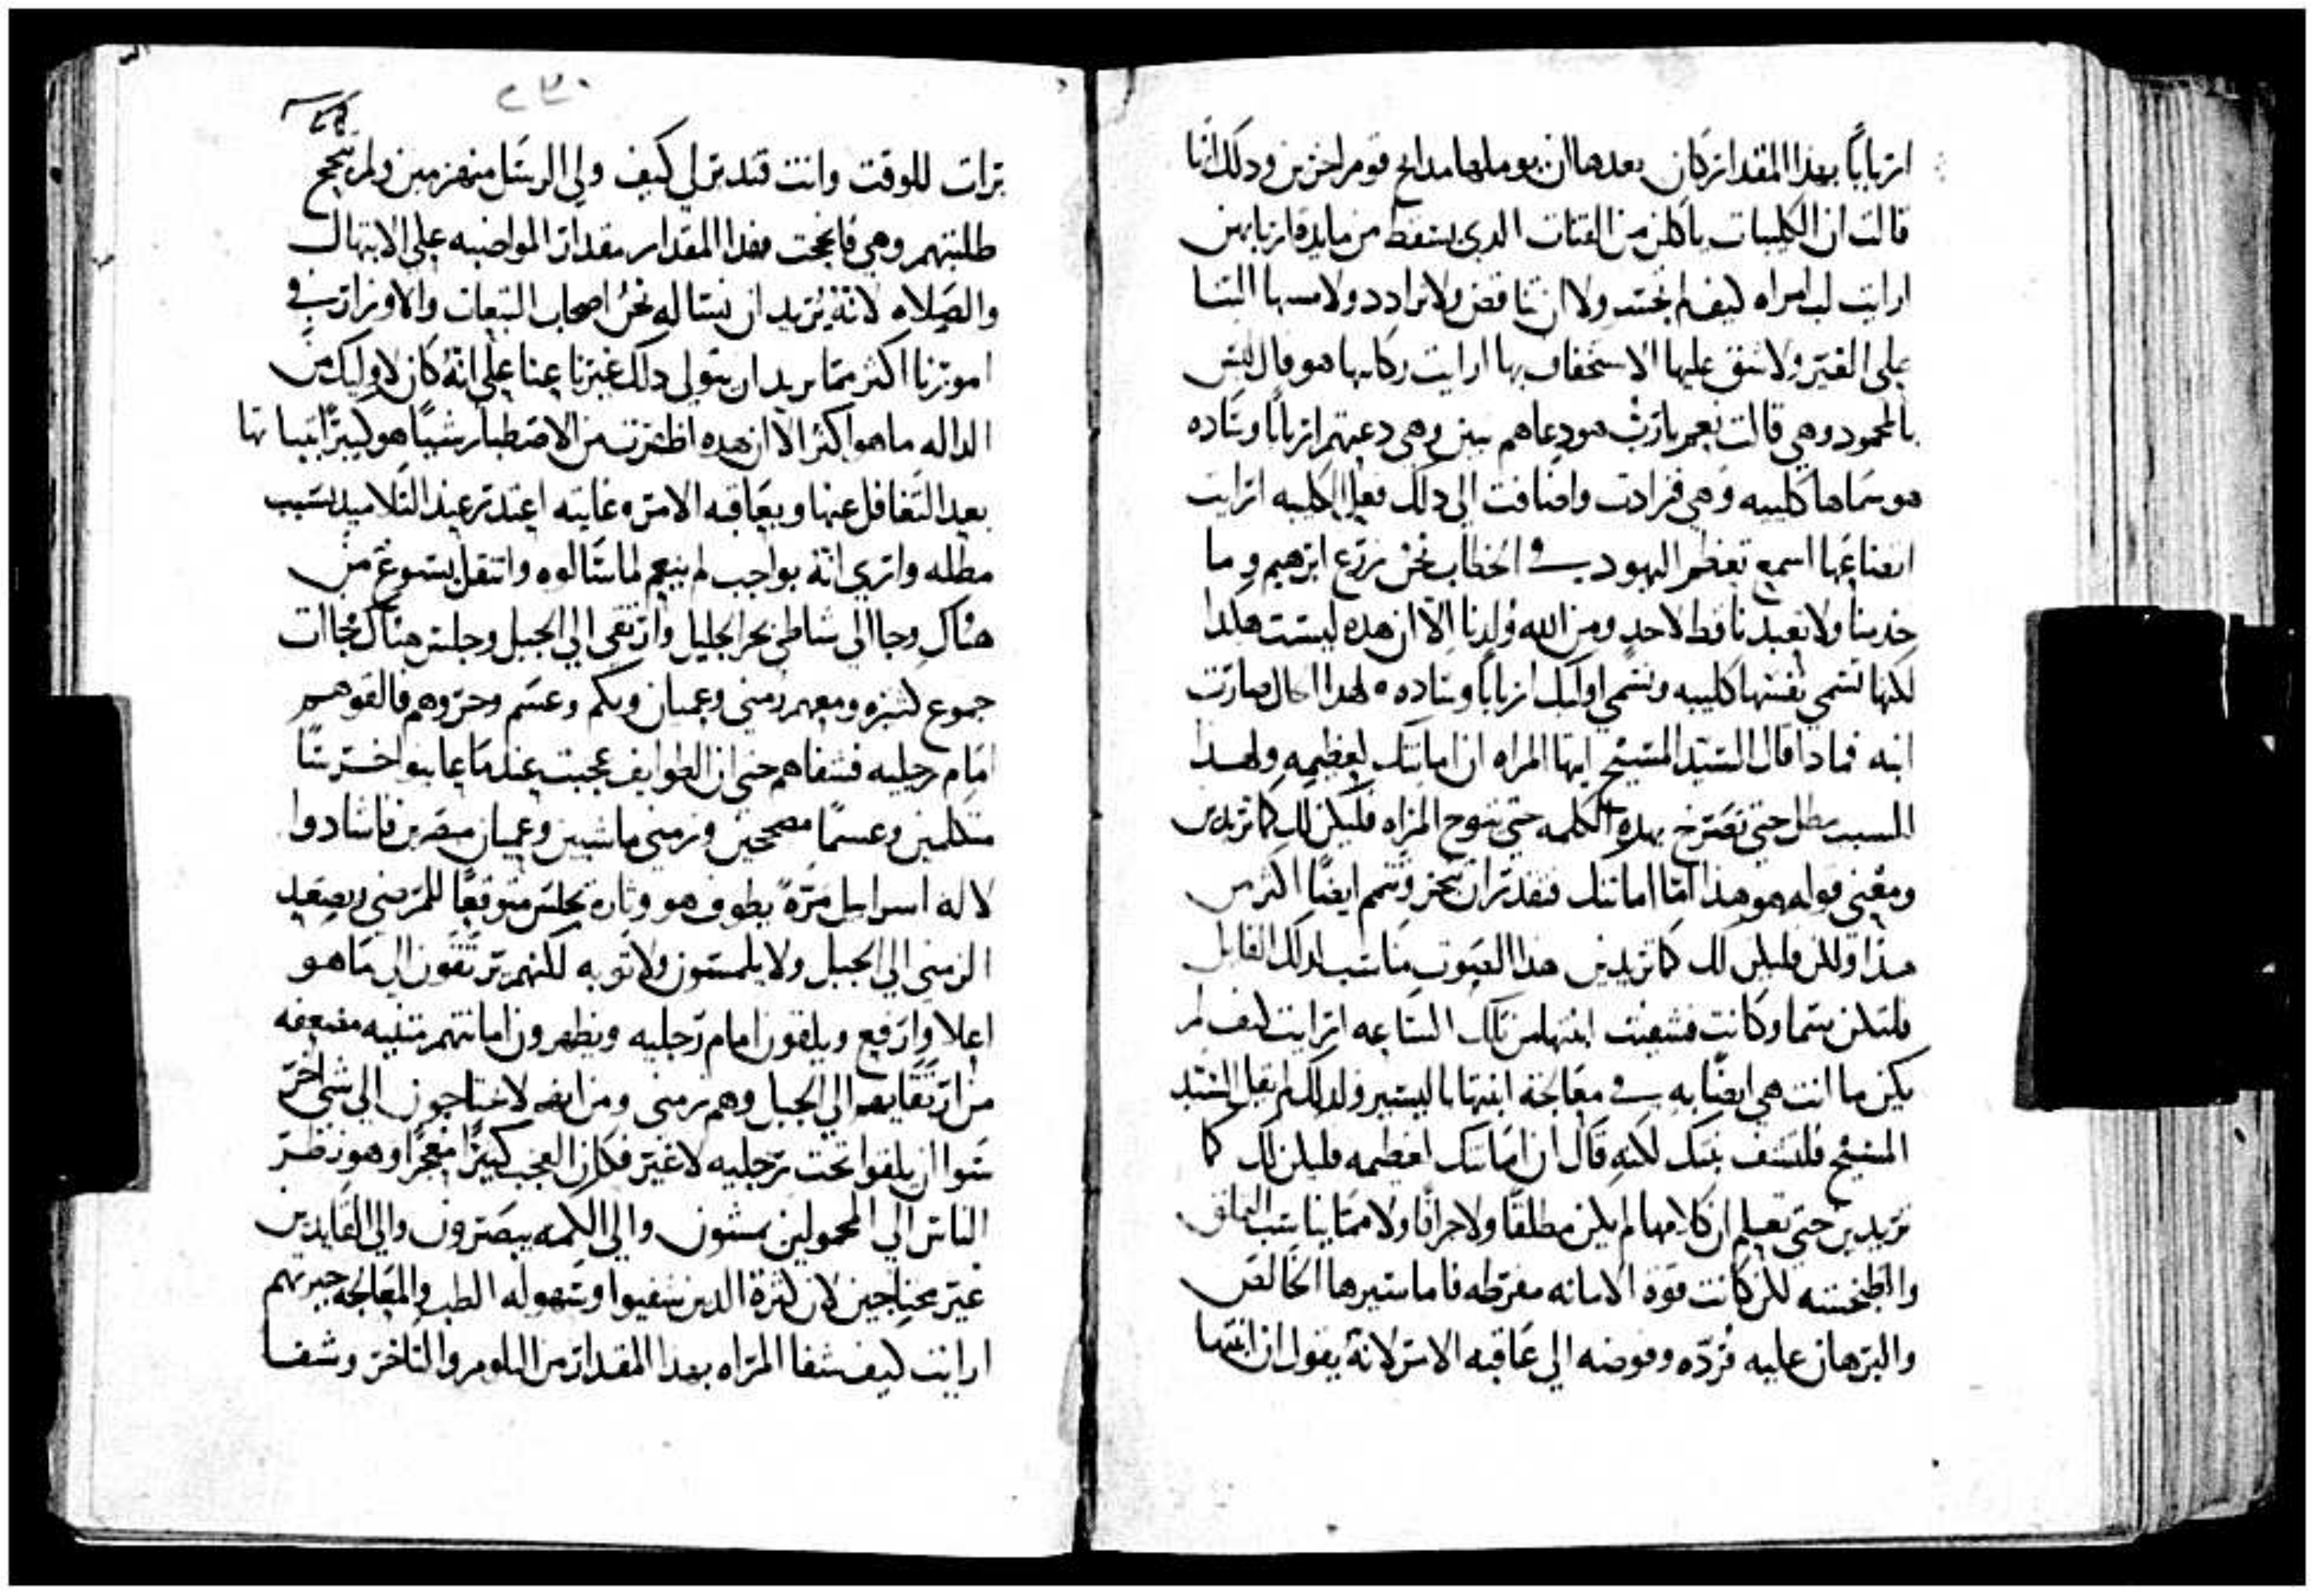 اربابًا بهذا المقدار كان بعدها ان يوملها مدايح قوم اخرين ودلك انها
قالت ان الكليبات ياكلن من الفتات الدي يسقط من مايدة اربابهن
ارايت لب امراه كيف لم تحتد ولا ان تناقض ولا ترادد ولا مسها الثنا
علي الغير ولا شق عليها الاستخفاف بها ارايت ركابها هو قال ليس
بالمحمود وهي قالت نعم يارب هو دعاهم بنين وهي دعتهم اربابًا وساده
هو سماها كليبه وهي فزادت واضافت الي دلك فعل الكلبه ارايت
اتضاعها اسمع تعظم اليهود في الخطاب نحن زرع ابرهيم وما
خدمنا ولا تعبدنا قط لاحد ومن الله ولدنا الا ان هده ليست هكدا
لكنها تسمي نفسها كليبه وتسمي اوليك اربابًا وساده ٥ لهدا الحال صارت
ابنه فمادا قال السيد المسيح ايتها المراه ان امانتك لعظيمه ولهدا
السبب مطل حتي تصرخ بهده الكلمه حتي تتوج المراه فليكن لك كما تريدين
ومعني قوله هو هدا امّا امانتك فتقدر ان تنجز وتتم ايضًا اكثر من
هدا ولكن فليكن لك كما تريدين هدا الصوت مناسب لدلك القايل
فلتكن سما وكانت فشفيت ابنتها من تلك الساعه ارايت كيف لم
يكن ما اتت هي ايضًا به في معالجة ابنتها باليسير ولدلك لم يقل السيد
المسيح فلتشف بنتك لكنه قال ان امانتك لعظيمه فليكن لك كما
تريدين حتي تعلم ان كلامها لم يكن مطلقًا ولا جزافًا ولا مما يناسب الملق
كانت قوة الامانه مفرطه فاما سيرها الخالص
والبرهان عليه فردّه وفوضه الي عاقبه الامر لانه يقول ان ابنتها
٢٣٠
برات للوقت وانت فتدبر لي كيف ولي الرسل منهزمين ولم تنجح
طلبتهم وهي فانجحت هدا المقدار مقدار المواضبه علي الابتهال
والصلاه لانه يريد ان نساله نحن اصحاب التبعات والاوزار في
امورنا اكثر مما يريد ان يتولي دلك غيرنا عنا علي انه كان لاوليك من
الداله ما هو اكثر الا ان هده اظهرت من الاصطبار شيًا هو كبيرًا
بعد التغافل عنها وبعاقبه الامر وغايته اعتدر عند التلاميد بسبب
مطله واري انه بواجب لم ينعم لما سالوه وانتقل يسوع من
هناك وجا الي شاطي بحر الجليل وارتقي الي الجبل وجلس هناك فجاات
جموع كثيره ومعهم زمني وعميان وبكم وعسم وحروهم فالقوهم
امام رجليه فشفاهم حتي ان الطوايف عجبت عند ما عاينوا خرسًا
متكلمين وعسمًا مصححين وزمني ماشيين وعميان مبصرين فاشادوا
لاله اسرايل مرّة يطوف هو وتارة يجلس متوقعًا للمرضي ويصعد
الزمني الي الجبل ولا يلمسون ولا ثوبه لكنهم يرتقون الي ما هو
اعلا وارفع ويلقون امام رجليه ويظهرون امانتهم متنيه متضعفه
من ارتقايهم الي الجبل وهم زمني ومن انهم لا يحتاجون الي شي اخر
سوا ان يلقوا تحت رجليه لا غير فكان العجب كبيرًا معجزًا وهو نظر
الناس الي المحمولين يمشون والي الكمه يبصرون والي القايدين
غير محتاجين لان كثرة الدين شفيوا وسهولة الطب والمعالجه حيرتهم
ارايت كيف شفا المراه بهدا المقدار من التلوم والتاخر وشفا